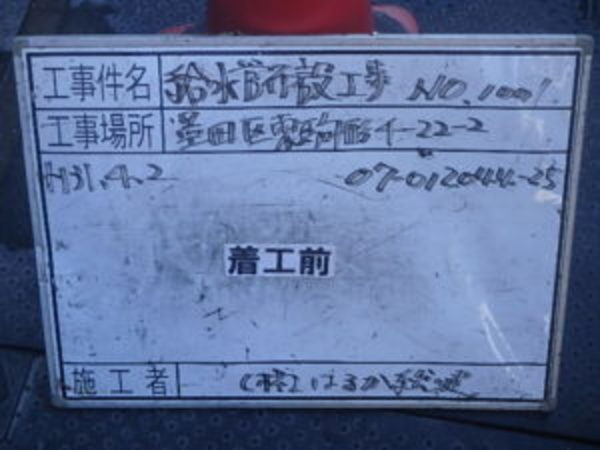 工事件名 給水管布設工事 NO.1001
工事場所 墨田区東駒形4-22-2
H31.4.2 07-012044-25
着工前
施工者 (株)はるか総建